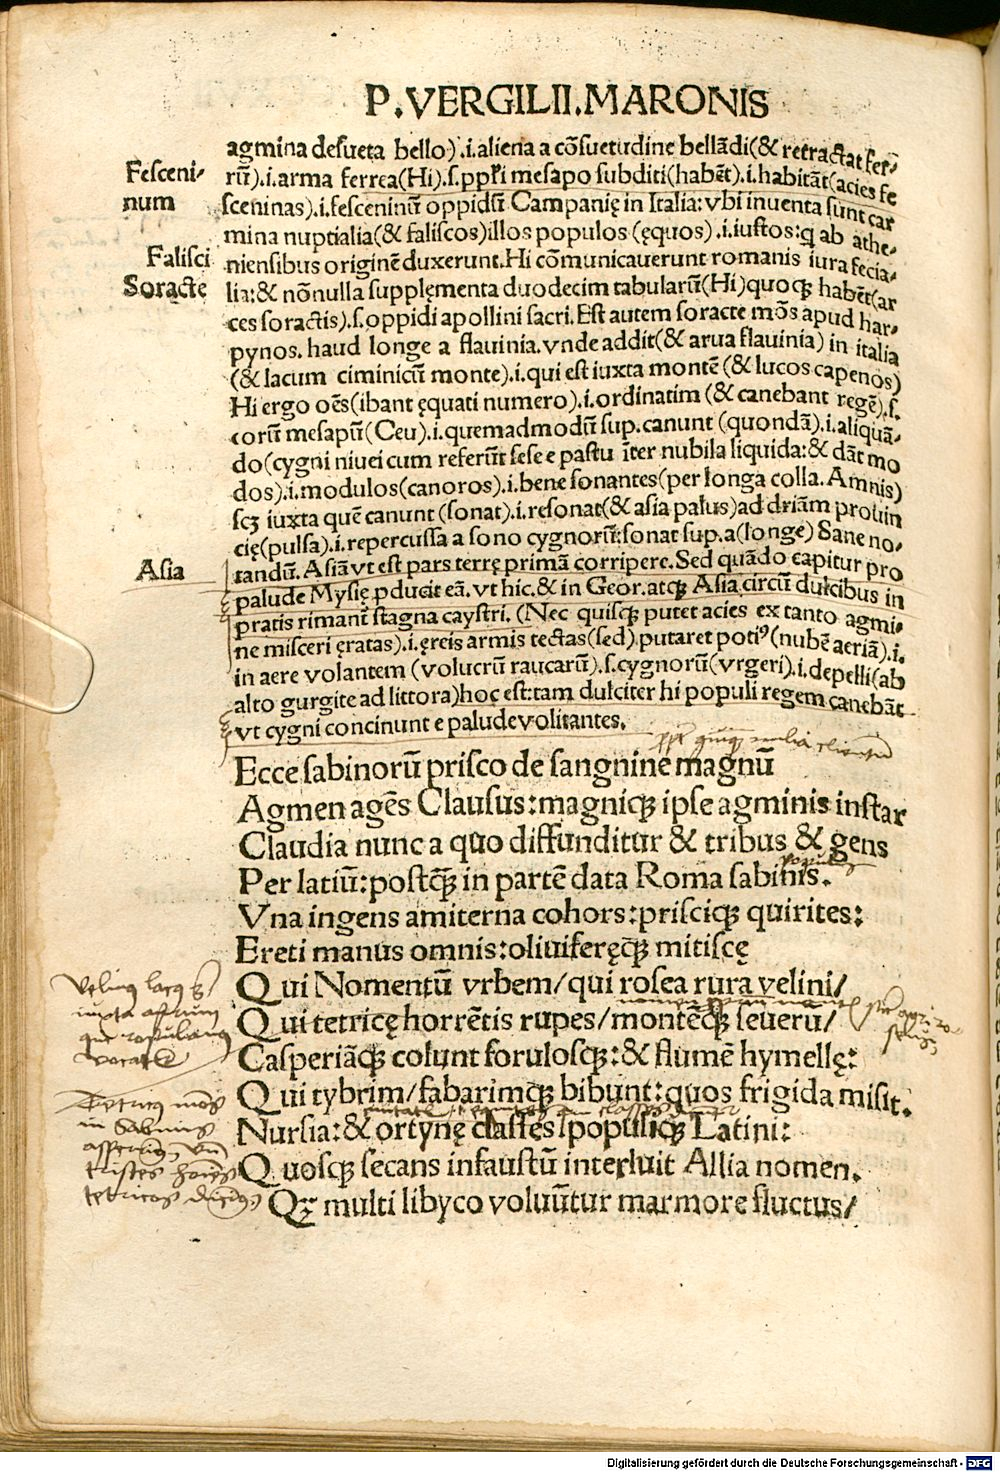 P.VERGILII.MARONIS
agmina desueta bello).i.aliena a cõsuetudine bellãdi(& retractat fer-
rũ).i.arma ferrea(Hi).s.ppri mesapo subditi(habẽt).i.habitãt(acies fe
Fesceni-
num
sceninas).i.fesceninũ oppidũ Campanię in Italia:vbi inuenta sunt car
mina nuptialia(& faliscos)illos populos (ęquos).i.iustos:q ab athe-
Falisci
niensibus originẽ duxerunt.Hi cõmunicauerunt romanis iura fecia-
Soracte
lia:& nõnulla supplęmenta duodecim tabularũ(Hi)quoqȝ habẽt(ar
ces soractis).s.oppidi apollini sacri.Est autem soracte mõs apud har-
pynos. haud longe a flauinia.vnde addit(& arua flauinia) in italia
(& lacum ciminicũ monte).i.qui est iuxta montẽ (& lucos capenos)
Hi ergo oẽs(ibant ęquati numero).i.ordinatim (& canebant regẽ).s.
eorũ mesapũ(Ceu).i.quemadmodũ sup.canunt (quondã).i.aliquã-
do(cygni niuei cum referũt sese e pastu ĩter nubila liquida:& dãt mo
dos).i.modulos(canoros).i.bene sonantes(per longa colla.Amnis)
scȝ iuxta quẽ canunt (sonat).i.resonat(& asia palus)ad driãm prouin
cię(pulsa).i.repercussa a sono cygnorũ:sonat sup.a(longe) Sane no-
Asia
tandũ. Asiã vt est pars terrę primã corripere. Sed quãdo capitur pro
palude Mysię pducit eã. vt hic.& in Geor.atqȝ Asia circũ dulcibus in
pratis rimant stagna caystri. (Nec quisqȝ putet acies ex tanto agmi-
ne misceri ęratas).i.ęreis armis tectas(sed).putaret poti⁹(nubẽ aeriã).i.
in aere volantem (volucrũ raucarũ).s.cygnorũ(vrgeri).i.depelli(ab
alto gurgite ad littora)hoc est:tam dulciter hi populi regem canebãt
vt cygni concinunt e palude volitantes.
Ecce sabinorũ prisco de sangnine magnũ
Agmen agẽs Clausus:magniqȝ ipse agminis instar
Claudia nunc a quo diffunditur & tribus & gens
Per latiũ:postqȝ in partẽ data Roma sabinis.
Vna ingens amiterna cohors:prisciqȝ quirites:
Ereti manus omnis:oliuiferęqȝ mitiscę
Qui Nomentũ vrbem/qui rosea rura velini/
Qui tetricę horrẽtis rupes/montẽqȝ seuerũ/
Casperiãqȝ colunt forulosqȝ:& flumẽ hymellę:
Qui tybrim/fabarimqȝ bibunt:quos frigida misit.
Nursia:& ortynę classes populiqȝ Latini:
Quosqȝ secans infaustũ interluit Allia nomen.
Qȝ multi libyco voluũtur marmore fluctus/
Velinus lacus
vocatẽ
Tetricus mõs
in Sabinis
tetricos
Digitalisierung gefördert durch die Deutsche Forschungsgemeinschaft - DFG